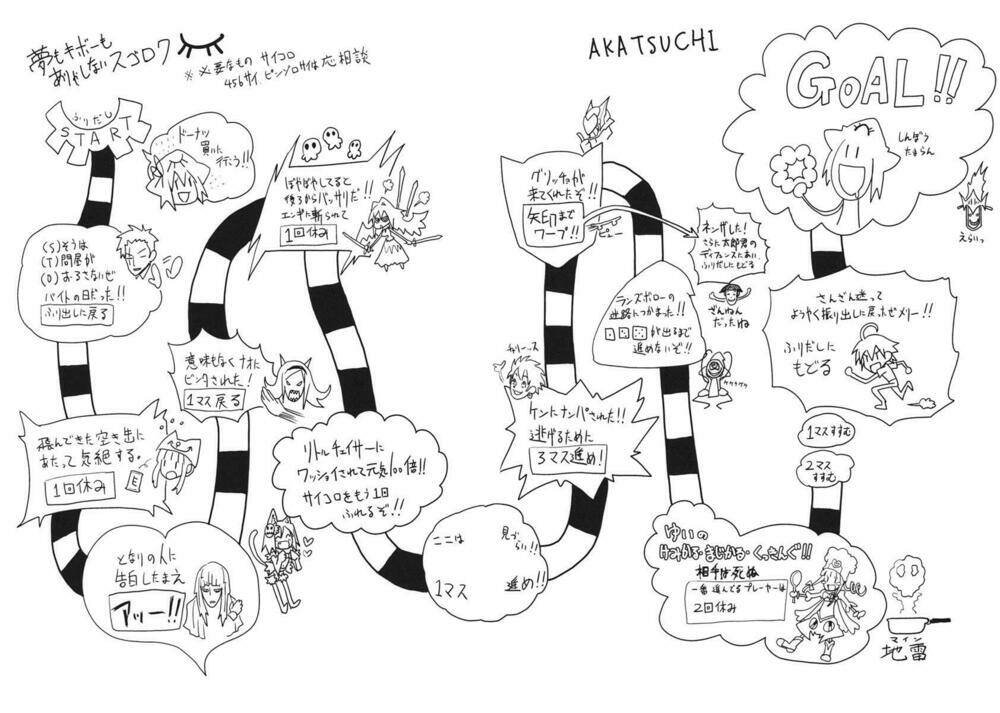 夢もキボーも
ありゃしないスゴロク
※必要なもの サイコロ
456サイ、ピンゾロサイは応相談
AKATSUCHI
ふりだし
START
ドーナツ
買いに
行こう!!
(S)そうは
(T)問屋が
(O)おろさないぜ
バイトの日だった!!
ふり出しに戻る
飛んできた空き缶に
あたって気絶する。
1回休み
E
となりの人に
告白したまえ
アッー!!
意味もなくナオに
ビンタされた!
1マス戻る
ぼやぼやしてると
後ろからバッサリだ!!
エンギに斬られて
1回休み
リトルチェイサーに
ワッショイされて元気100倍!!
サイコロをもう1回
ふれるぞ!!
ここは 見づらい!!
1マス 進め!!
チャリーッス
ケンにナンパされた!!
逃げるために
3マス進め!
グリッチョが
来てくれたぞ!!
矢印まで
ワープ!!
ネンザした!
さらに太郎君の
ディフェンスにあい、
ふりだしにもどる
ざんねん
だったね
ランズボローの
迷路につかまった!!
が出るまで
進めないぞ!!
ケケケケケ
ゆいの
けみかる・まじかる・くっきんぐ!!
相手は死ぬ
一番進んでるプレーヤーは
2回休み
マイン
地雷
2マス
すすむ
1マスすすむ
さんざん迷って
ようやく振り出しに戻ったぜメリー!!
ふりだしに
もどる
GOAL!!
しんぼう
たまらん
えらいっ